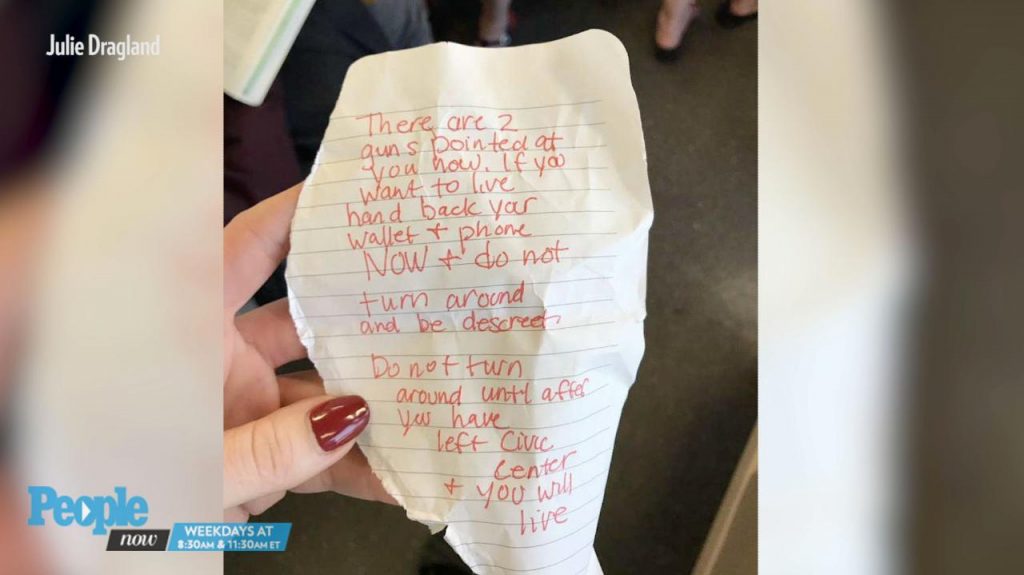 Julie Dragland
There are 2
guns pointed at
you now. If you
want to live
hand back your
wallet + phone
NOW + do not
turn around
and be descreet
Do not turn
around until after
you have
left Civic
Center
+ you will
live
People
now
WEEKDAYS AT
8:30AM & 11:30AM ET